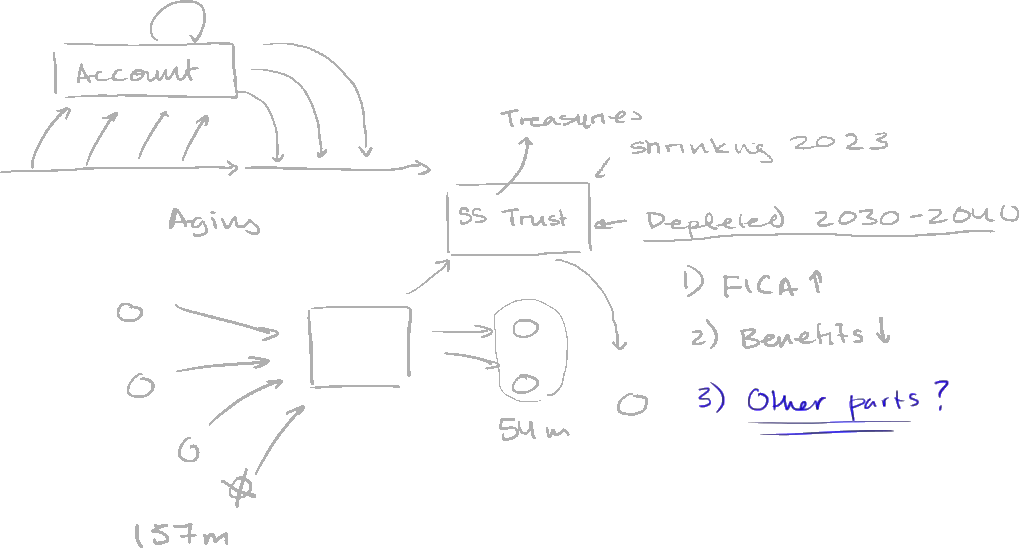 Account
Treasuries
shrinking 2023
Aging
SS Trust
Depleted 2030-2040
1) FICA ↑
2) Benefits ↓
3) Other parts?
54m
157m